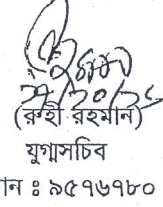 (রুহী রহমান)
যুগ্মসচিব
ন ঃ ৯৫৭৬৭৮০